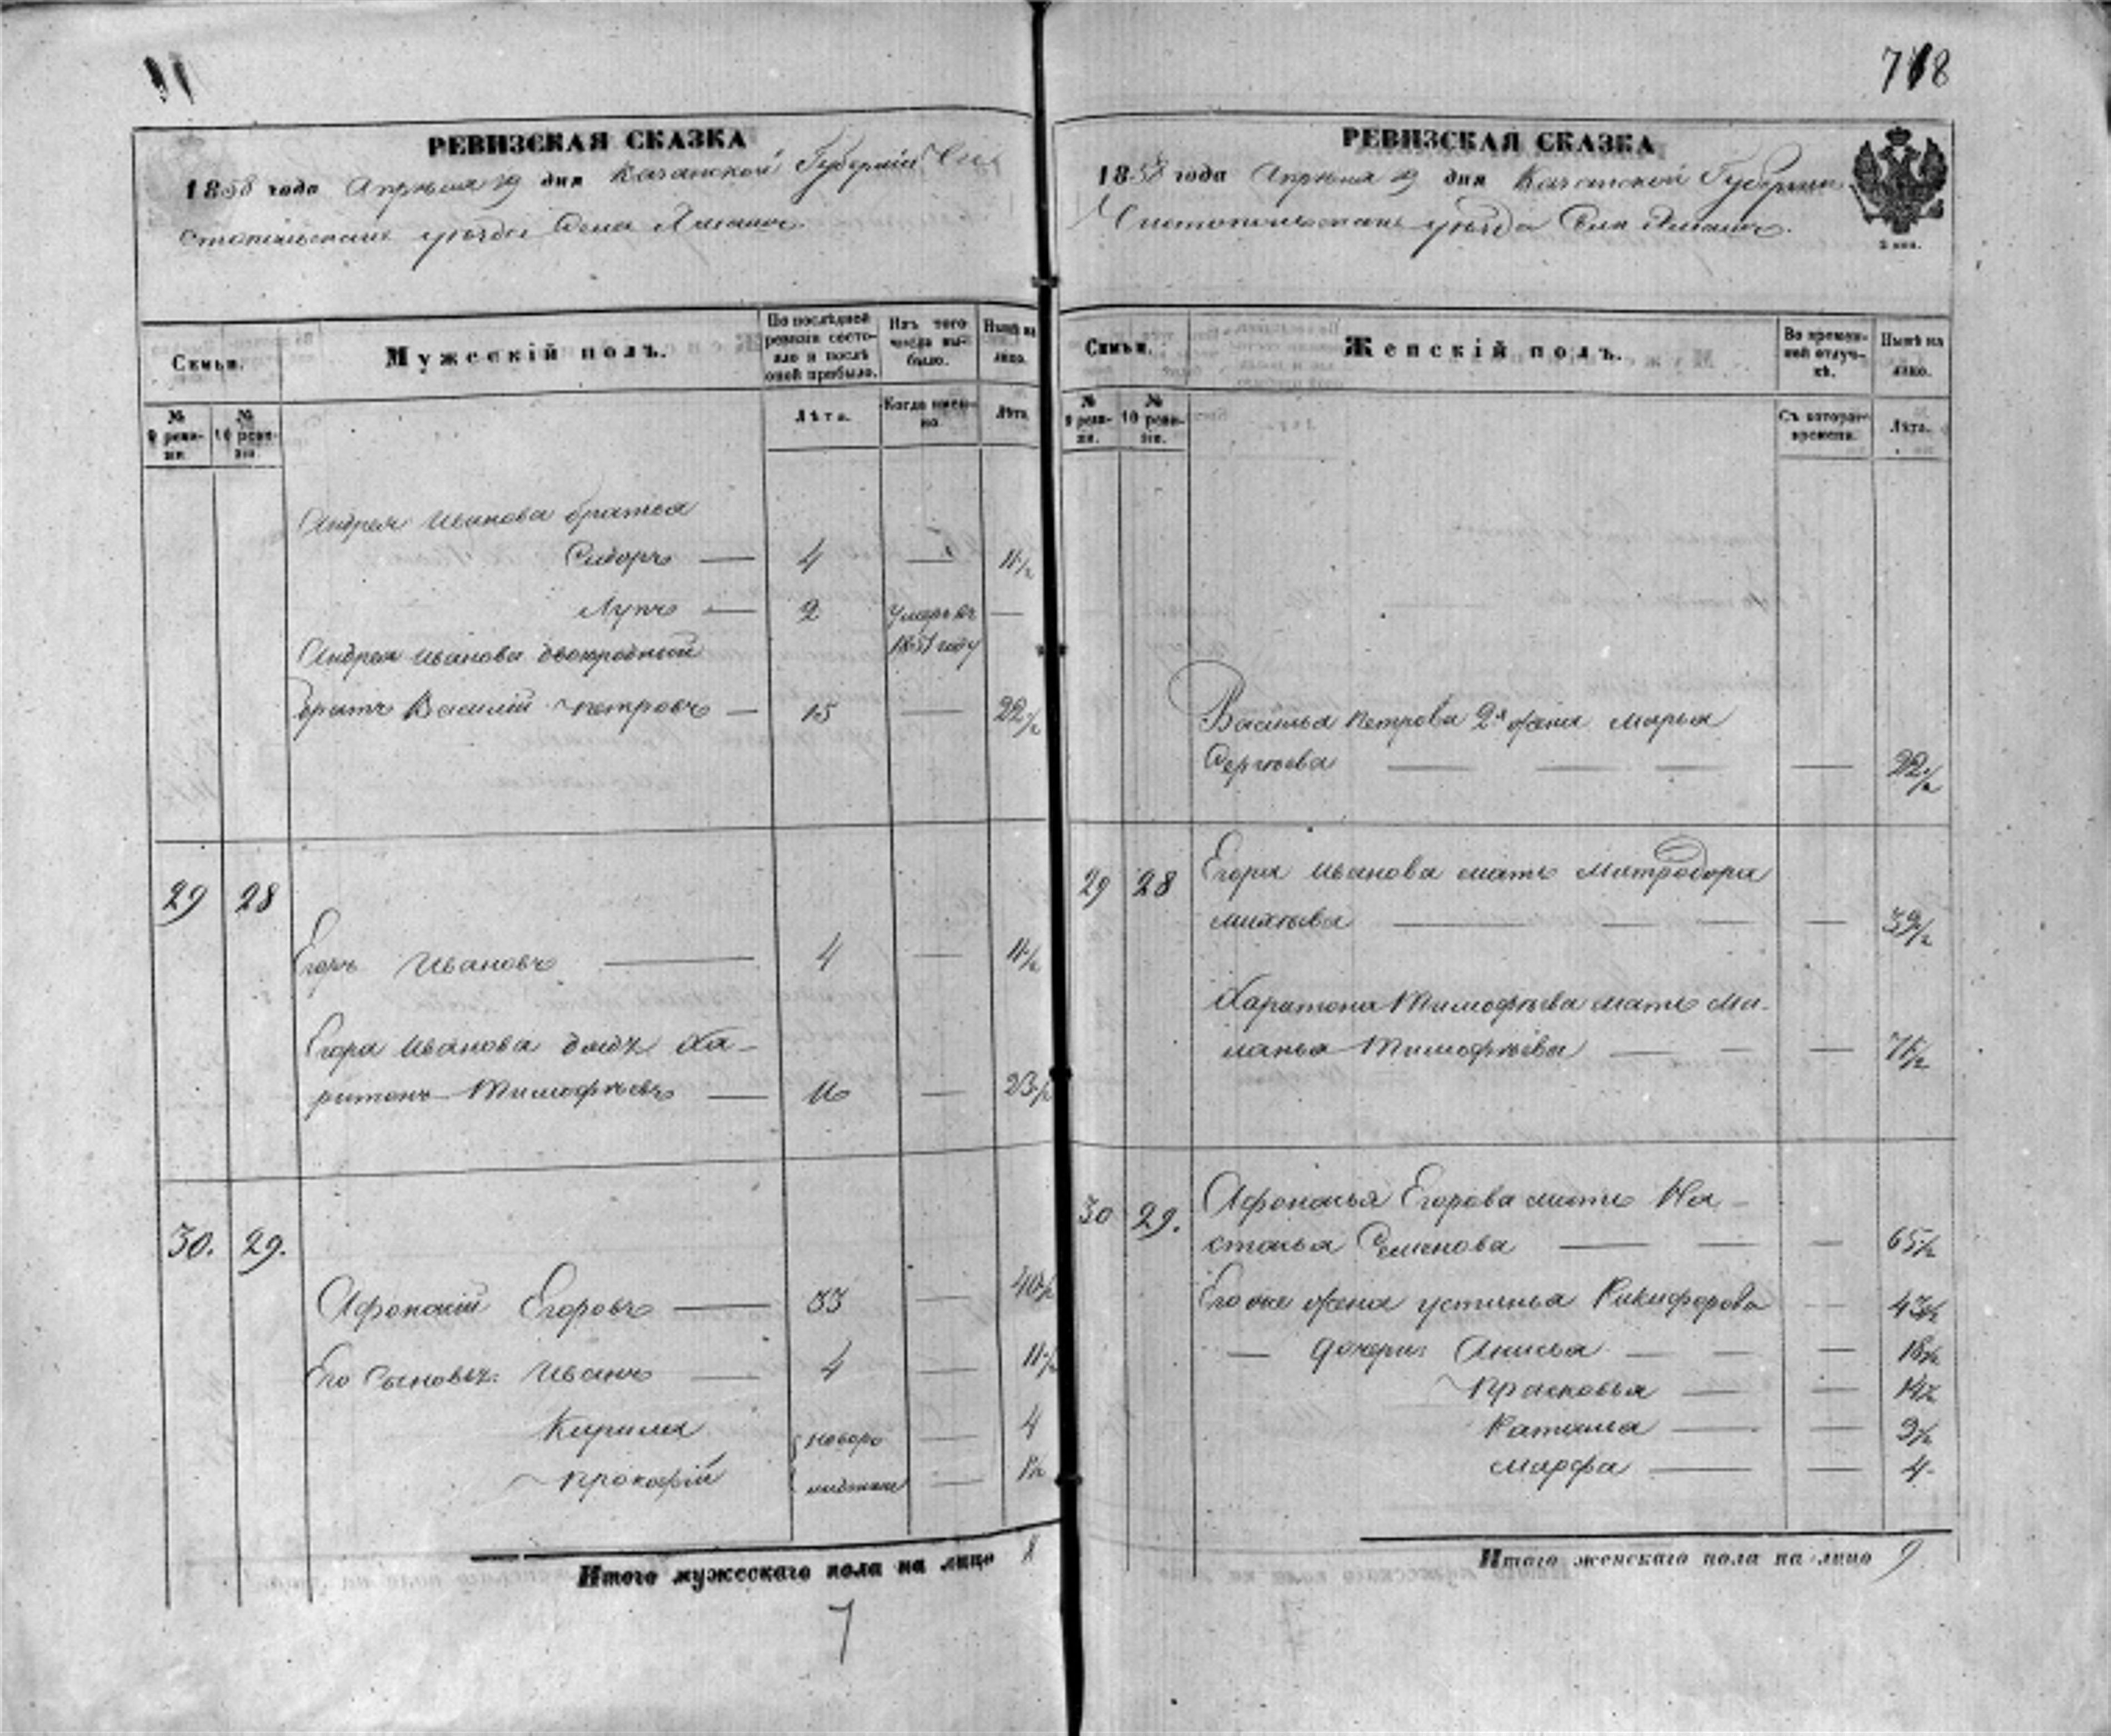 718
РЕВИЗСКАЯ СКАЗКА
1858 года Апрѣля 19 дня Казанской Губерніи Чи
стопольскаго уѣзда Села
Семьи.
Мужескій полъ.
По послѣдней ревизіи состояло и послѣ оной прибыло.
Изъ того числа выбыло.
Нынѣ на лицо.
№ 9 ревизіи.
№ 10 ревизіи.
Лѣта.
Когда именно.
Лѣта.
Андрея Иванова братья
Сидоръ — 4 — 11½
Лупъ — 2 умеръ въ —
1851 году
Андрея Иванова двоюродный
братъ Василій Петровъ — 15 — 22½
29 28
Егоръ Ивановъ — 4 — 11½
Егора Иванова дядя Ха-
ритонъ Тимофѣевъ — 16 — 23½
30. 29.
Афонасій Егоровъ — 33 — 40½
Его Сыновья: Иванъ — 4 — 11½
Кирила новоро — 4
Прокофій — ½
Итого мужескаго пола на лицо 8
7
РЕВИЗСКАЯ СКАЗКА
1858 года Апрѣля 19 дня Казанской Губерніи
Чистопольскаго уѣзда Села
2 коп.
Семьи.
Женскій полъ.
Во временной отлучкѣ.
Нынѣ на лицо.
№ 9 ревизіи.
№ 10 ревизіи.
Съ котораго времени.
Лѣта.
Василья Петрова 2я жена Марья
Сергѣева — — — — 22½
29 28 Егора Иванова мать Митродора
Михѣева — — — — 39½
Харитона Тимофѣева мать Ма-
ланья Тимофѣева — — — 71½
30 29. Афонасья Егорова мать На-
стасья Семенова — — — 65½
Его же жена Устинья Никифорова — 43½
— дочери: Анисья — — — 18½
Прасковья — — — 14½
Наталья — — 9½
Марфа — — 4
Итого женскаго пола на лицо 9